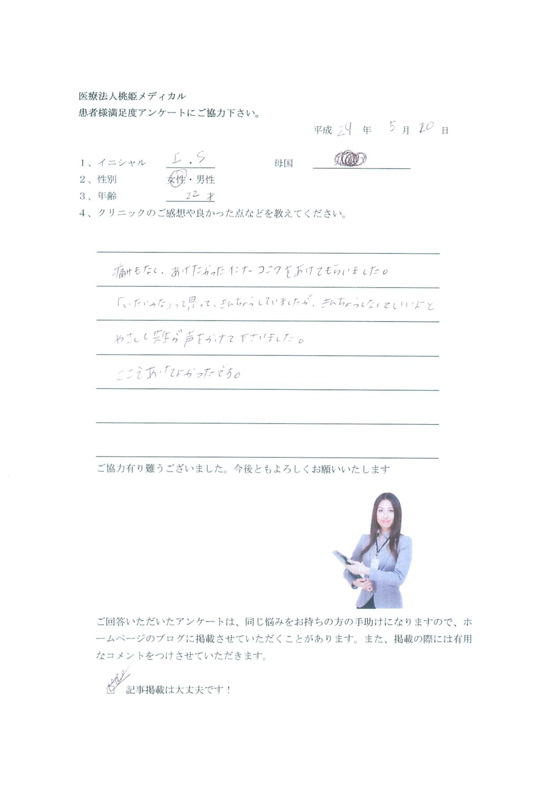 医療法人桃姫メディカル
患者様満足度アンケートにご協力下さい。
平成 24 年 5 月 20 日
1、イニシャル I.S 母国
2、性別 女性・男性
3、年齢 22才
4、クリニックのご感想や良かった点などを教えてください。
痛みもなし、あけたかったインナーコンクをあけてもらいました。
「いたいかな」って思って、きんちょうしていましたが、きんちょうしなくていいよと
やさしく先生が声をかけて下さいました。
ここであけてよかったです。
ご協力有り難うございました。今後ともよろしくお願いいたします
ご回答いただいたアンケートは、同じ悩みをお持ちの方の手助けになりますので、ホ
ームページのブログに掲載させていただくことがあります。また、掲載の際には有用
なコメントをつけさせていただきます。
記事掲載は大丈夫です！